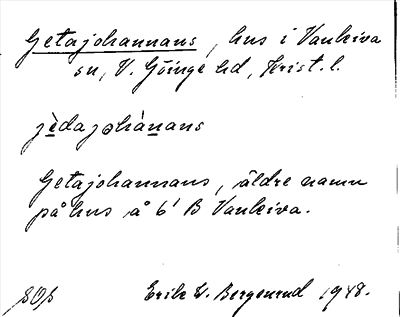 Getajohannans, hus i Vankiva
sn, V. Göinge hd, Krist. l.
jèdajohànans
Getajohannans, äldre namn
på hus å 6¹ B Vankiva.
SOS Erik W. Bergenrud 1948.